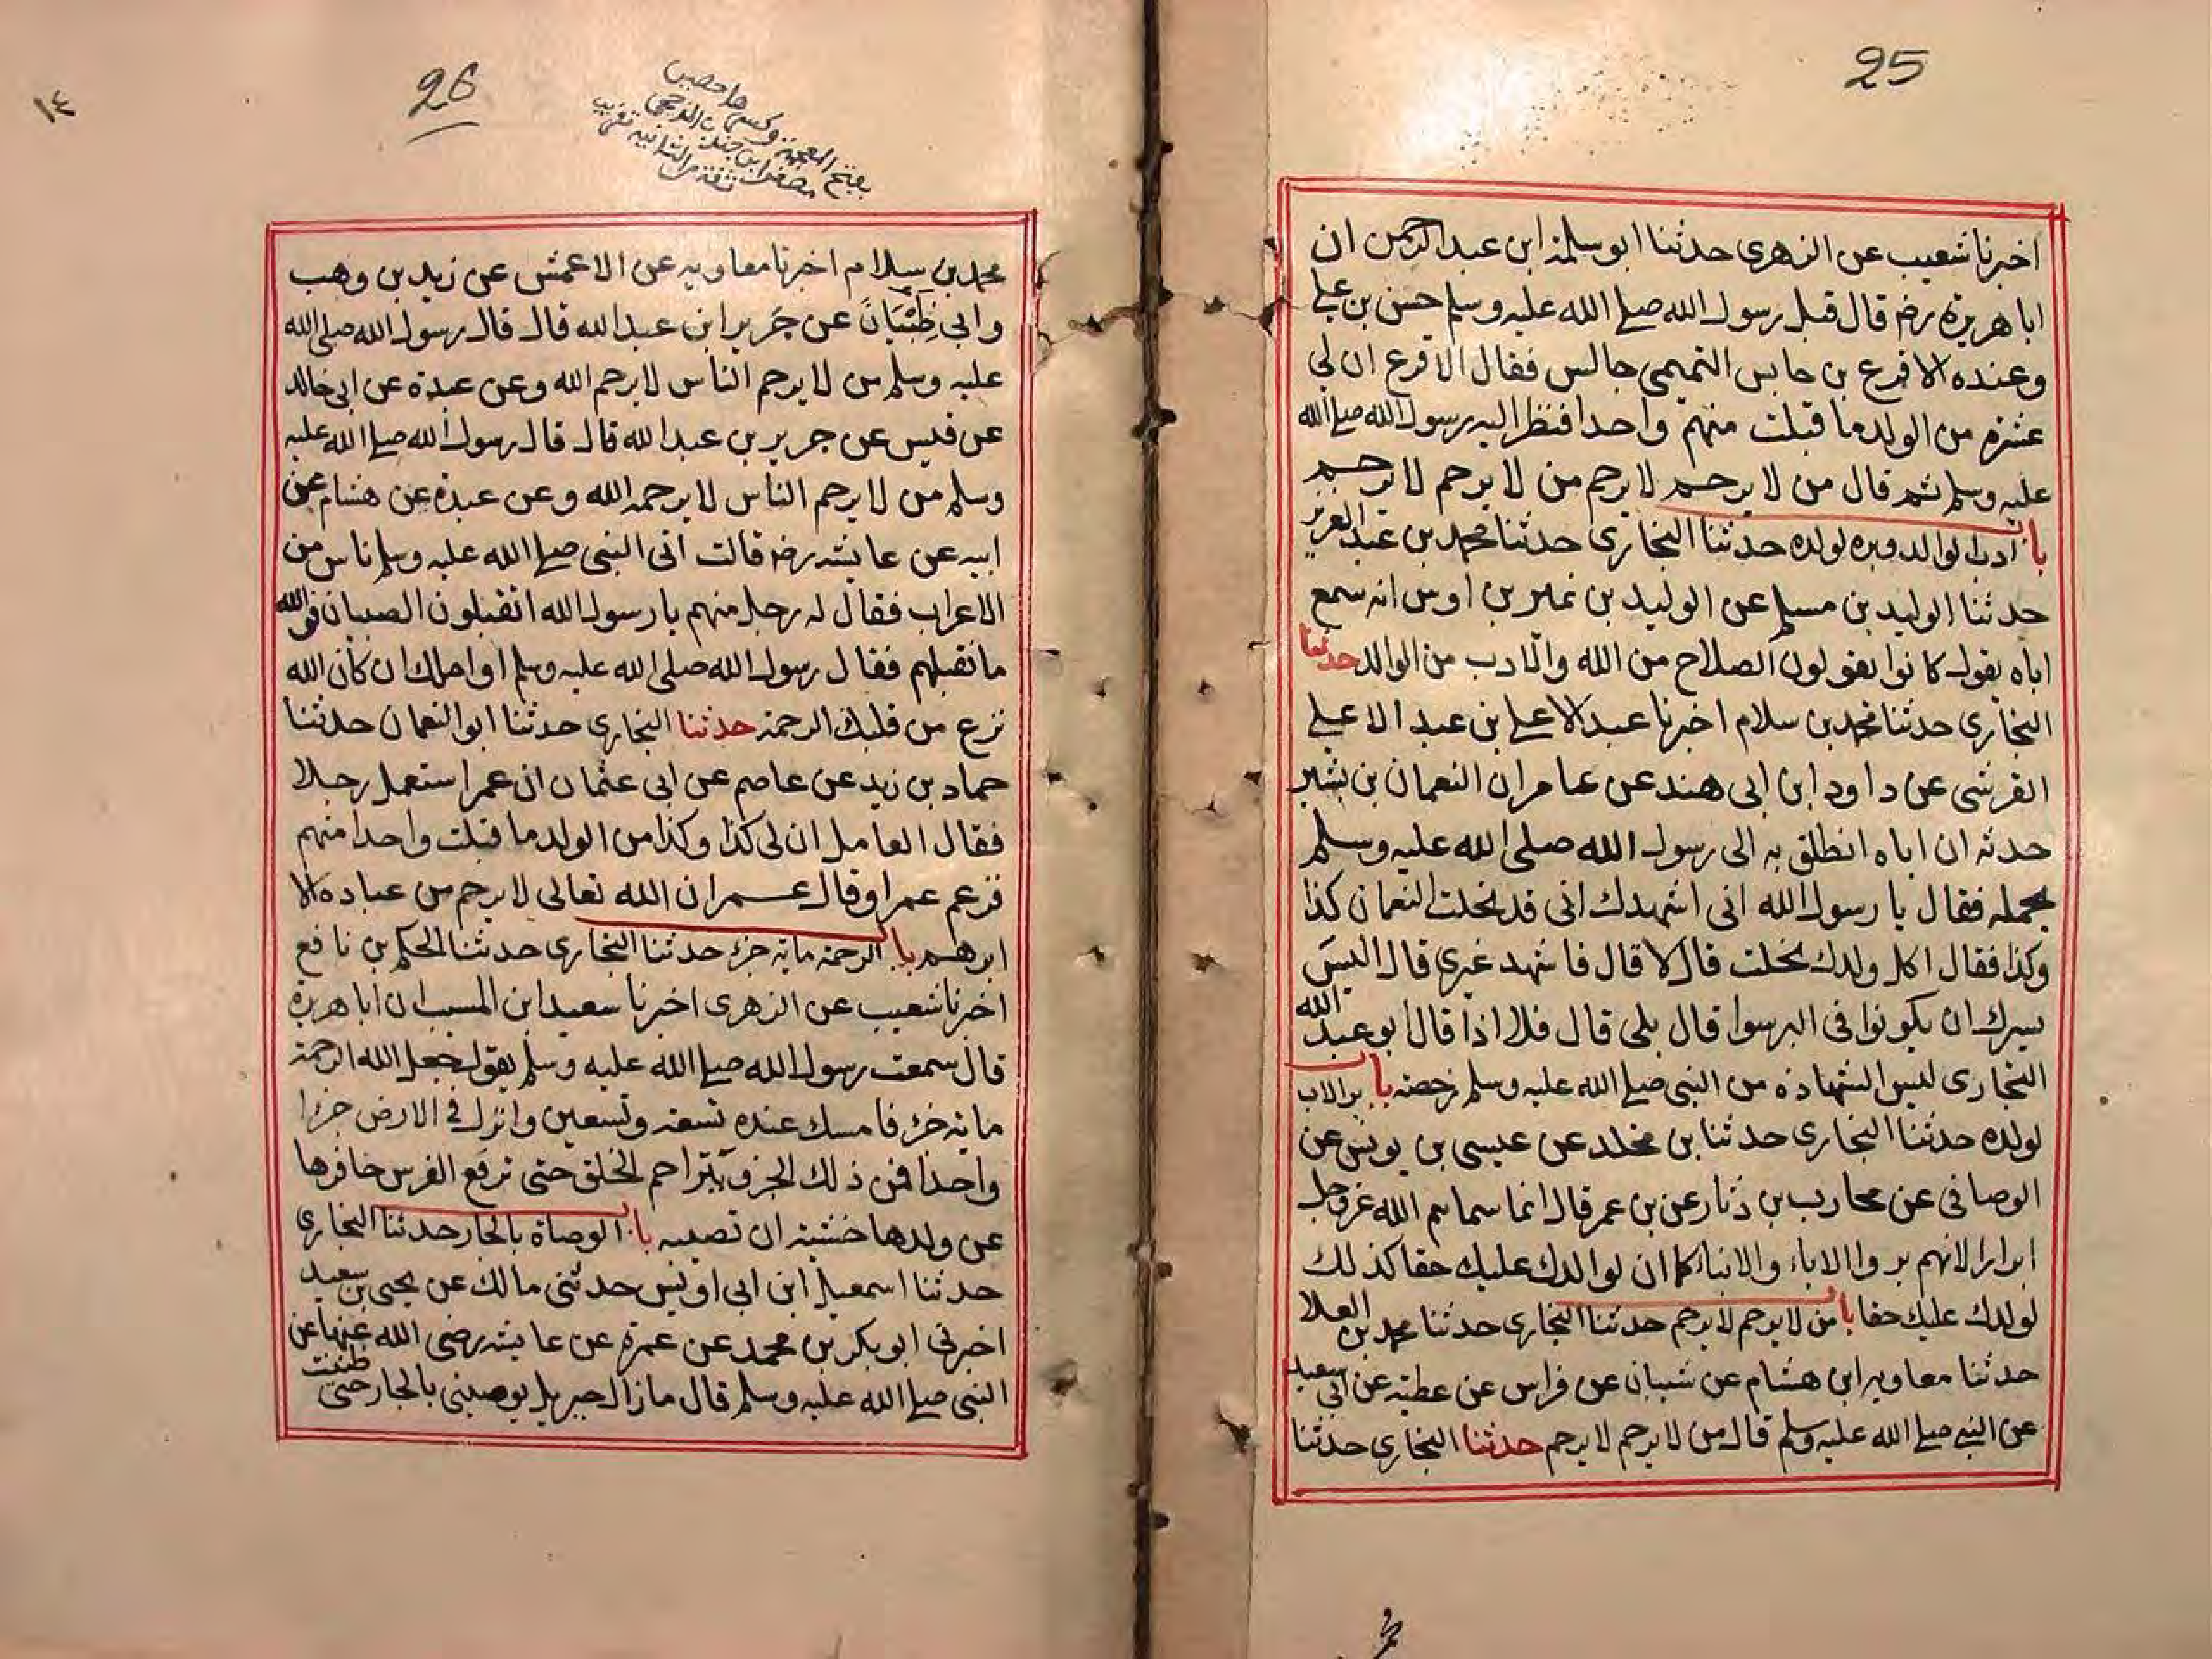 25
اخبرنا شعيب عن الزهرى حدثنا ابو سلمة ابن عبد الرحمن ان
ابا هريرة رضه قال قبل رسول الله صلى الله عليه وسلم حسن بن على
وعنده الاقرع بن حابس التميمى جالس فقال الاقرع ان لي
عشرة من الولد ما قبلت منهم واحدا فنظر اليه رسول الله صلى الله
عليه وسلم ثم قال من لا يرحم لا يرحم من لا يرحم لا يرحم
باب ادب الوالد وبره لولده حدثنا البخارى حدثنا محمد بن عبد العزيز
حدثنا الوليد بن مسلم عن الوليد بن نمير بن اوس انه سمع
اباه يقول كانوا يقولون الصلاح من الله والادب من الوالد حدثنا
البخارى حدثنا محمد بن سلام اخبرنا عبد الاعلى بن عبد الاعلى
القرشى عن داود ابن ابى هند عن عامر ان النعمان بن بشير
حدثه ان اباه انطلق به الى رسول الله صلى الله عليه وسلم
يحمله فقال يا رسول الله انى اشهدك انى قد نحلت النعمان كذا
وكذا فقال اكل ولدك نحلت قال لا قال فاشهد غيرى قال اليس
يسرك ان يكونوا فى البر سوا قال بلى قال فلا اذا قال ابو عبد الله
البخارى ليس الشهادة من النبى صلى الله عليه وسلم رخصة باب بر الاب
لولده حدثنا البخارى حدثنا بن مخلد عن عيسى بن يونس عن
الوصافى عن محارب بن دثار عن بن عمر قال انما سماهم الله عز وجل
ابرارا لانهم بروا الاباء والابناء كما ان لوالدك عليك حقا كذلك
لولدك عليك حقا باب من لا يرحم لا يرحم حدثنا البخارى حدثنا محمد بن العلا
حدثنا معاويه ابن هشام عن شيبان عن فراس عن عطية عن ابى سعيد
عن النبى صلى الله عليه وسلم قال من لا يرحم لا يرحم حدثنا البخارى حدثنا
26
١٤
بفتح المعجمة وكسرها حصين
ابن جندب الجنبى
ثقة من الثانية تقريب
محمد بن سلام اخبرنا معاويه عن الاعمش عن زيد بن وهب
وابي ظبيان عن جرير ابن عبد الله قال قال رسول الله صلى الله
عليه وسلم من لا يرحم الناس لا يرحم الله وعن عبدة عن ابى خالد
عن قيس عن جرير بن عبد الله قال قال رسول الله صلى الله عليه
وسلم من لا يرحم الناس لا يرحمه الله وعن عبدة عن هشام عن
ابيه عن عايشه رضه قالت اتى النبى صلى الله عليه وسلم ناس من
الاعراب فقال له رجل منهم يا رسول الله اتقبلون الصبيان فوالله
ما نقبلهم فقال رسول الله صلى الله عليه وسلم او املك ان كان الله
نزع من قلبك الرحمة حدثنا البخارى حدثنا ابو النعمان حدثنا
حماد بن زيد عن عاصم عن ابى عثمان ان عمر استعمل رجلا
فقال العامل ان لى كذا وكذا من الولد ما قبلت واحدا منهم
فزعم عمر او قال عمر ان الله تعالى لا يرحم من عباده الا
ابرهم باب الرحمة ماية جزء حدثنا البخارى حدثنا الحكم بن نافع
اخبرنا شعيب عن الزهرى اخبرنا سعيد ابن المسيب ان ابا هريرة
قال سمعت رسول الله صلى الله عليه وسلم يقول جعل الله الرحمة
ماية جزء فامسك عنده تسعة وتسعين وانزل فى الارض جزءا
واحدا فمن ذلك الجزو يتراحم الخلق حتى ترفع الفرس حافرها
عن ولدها خشية ان تصيبه باب الوصاة بالجار حدثنا البخارى
حدثنا اسمعيل ابن ابى اويس حدثنى مالك عن يحيى بن سعيد
اخبرنى ابو بكر بن محمد عن عمرة عن عايشه رضى الله عنها عن
النبى صلى الله عليه وسلم قال ما زال جبريل يوصينى بالجار حتى ظننت